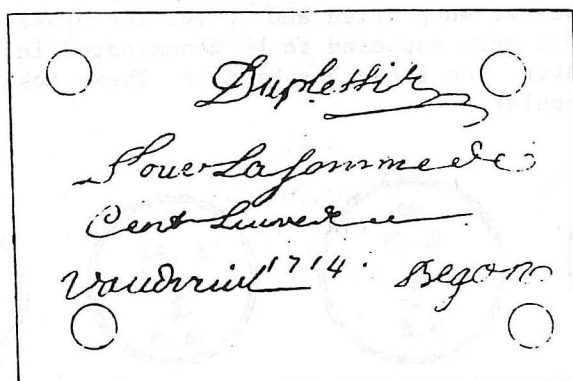 Duplessis
Pour La somme de
Cent Livres
Vaudreuil 1714. Begon